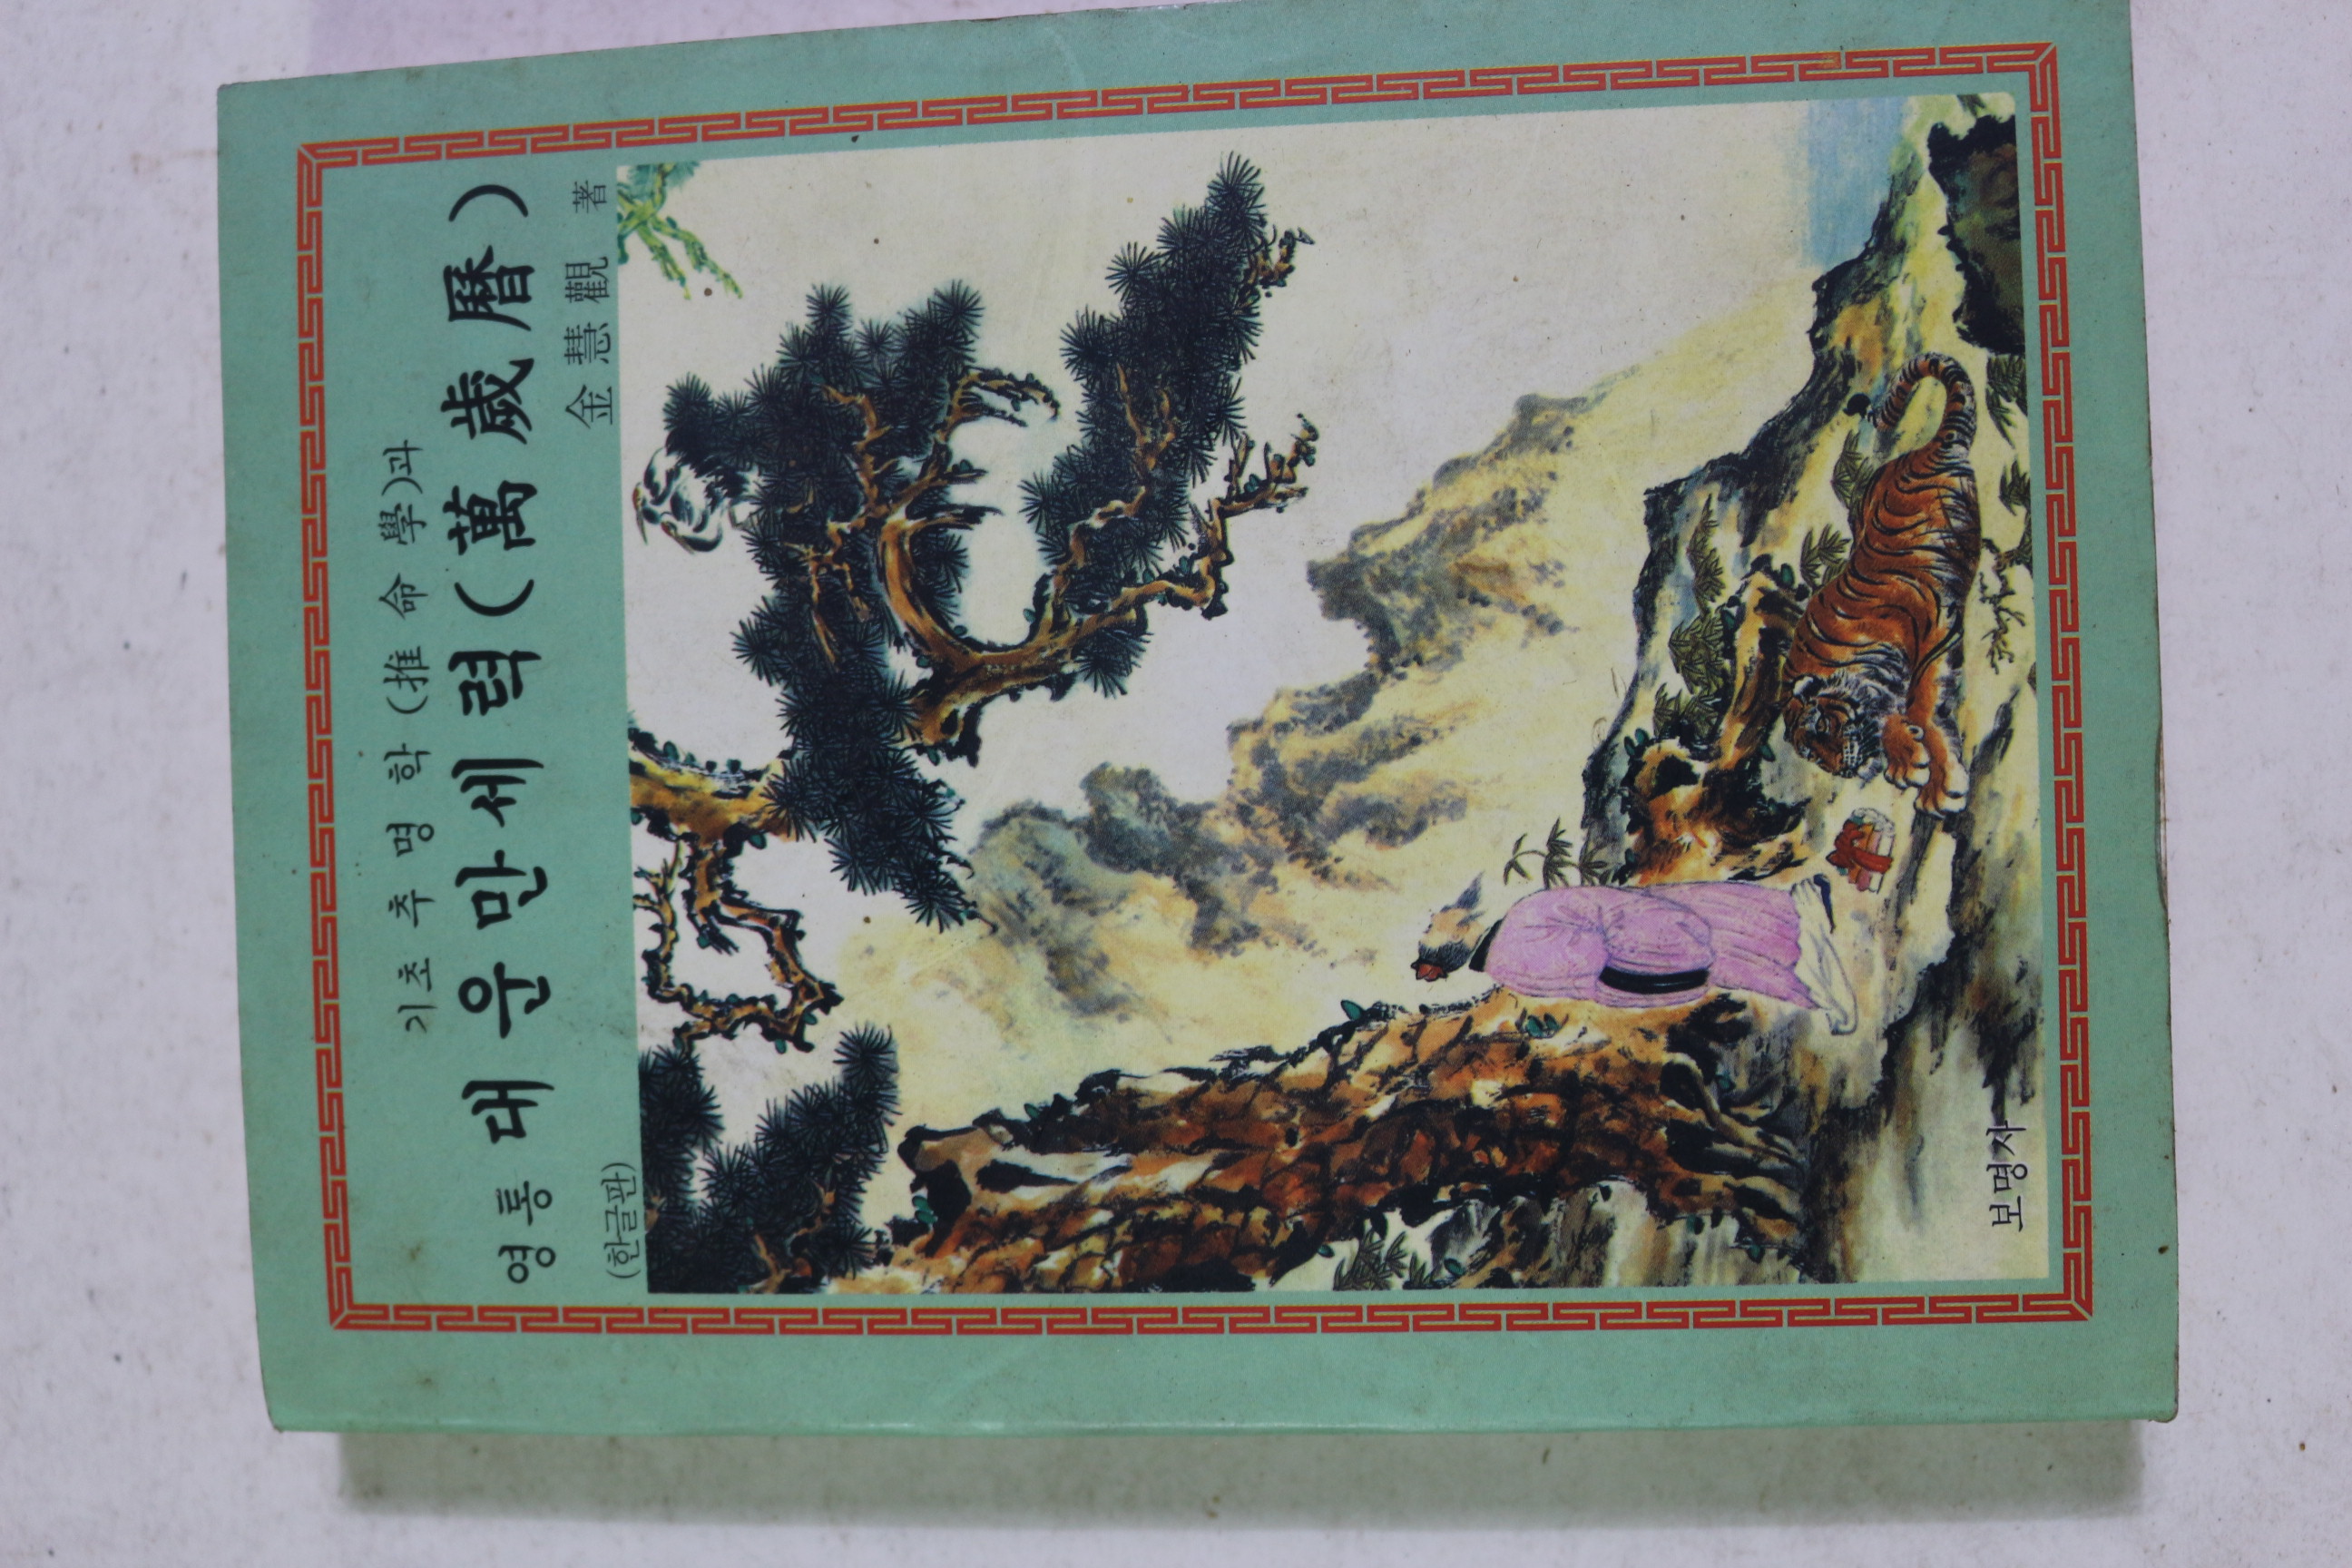 기초 추명학(推命學)과
영통 대운만세력(萬歲曆)
(한글판)
金慧觀 著
보명사